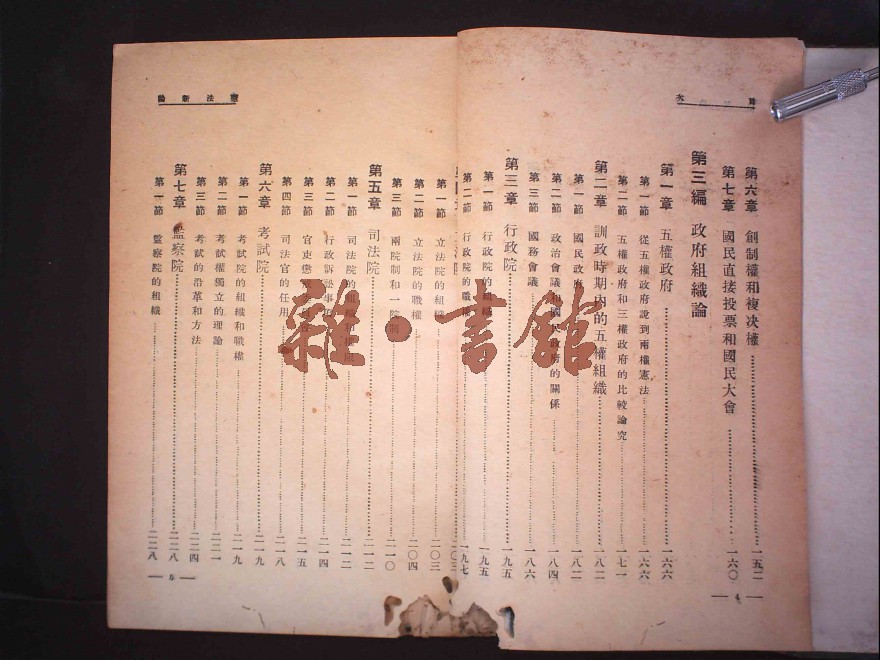 目次
第六章 創制權和複决權 一五二
第七章 國民直接投票和國民大會 一六〇
第三編 政府組織論
第一章 五權政府 一六六
第一節 從五權政府說到兩權憲法 一六六
第二節 五權政府和三權政府的比較論究 一七一
第二章 訓政時期內的五權組織 一八二
第一節 國民政府 一八二
第二節 政治會議和國民政府的關係 一八四
第三節 國務會議 一八六
第三章 行政院 一九五
第一節 行政院的組織 一九五
第二節 行政院的職權 一九七
4
憲法新論
第一節 立法院的組織 二〇三
第二節 立法院的職權 二〇四
第三節 兩院制和一院制 二一〇
第五章 司法院 二一二
第一節 司法院的組織和權 二一二
第二節 行政訴訟事 二一四
第三節 官吏懲 二一五
第四節 司法官的任用 二一八
第六章 考試院 二一九
第一節 考試院的組織和職權 二一九
第二節 考試權獨立的理論 二二一
第三節 考試的沿革和方法 二二四
第七章 監察院 二二八
第一節 監察院的組織 二二八
5
雜·書館